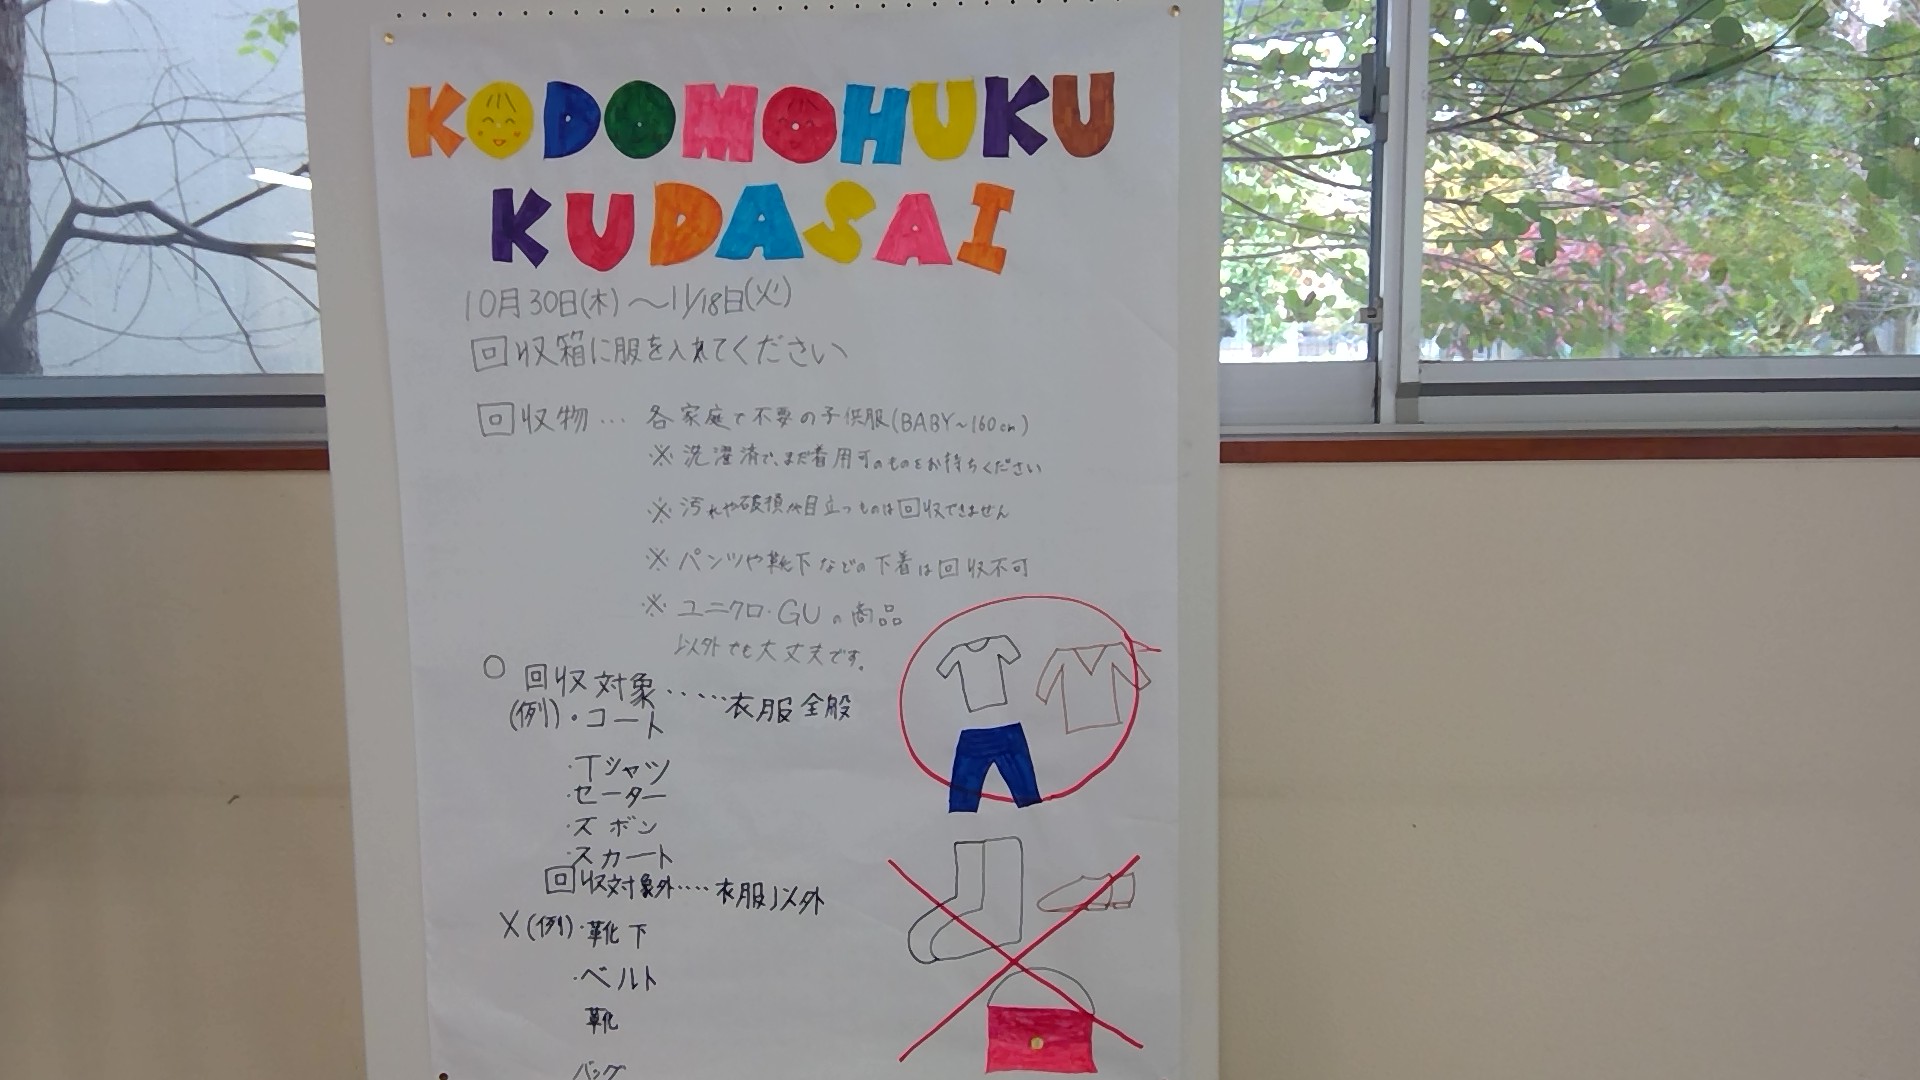 KODOMOHUKU
KUDASAI
10月30日(木)～11/18日(火)
回収箱に服を入れてください
回収物… 各家庭で不要の子供服(BABY～160cm)
※洗濯済で、まだ着用可のものをお持ちください
※汚れや破損が目立つものは回収できません
※パンツや靴下などの下着は回収不可
※ユニクロ・GUの商品
以外でも大丈夫です。
○ 回収対象‥‥‥衣服全般
(例)・コート
・Tシャツ
・セーター
・ズボン
・スカート
回収対象外‥‥衣服以外
X(例)・靴下
・ベルト
靴
バッグ